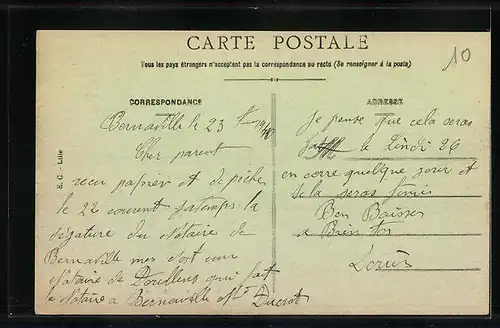 CARTE POSTALE
10
Tous les pays étrangers n'acceptent pas la correspondance au recto (Se renseigner à la poste)
CORRESPONDANCE
Bernaville le 23
Cher parent
recu papier et depeche
le 22 courent
segature du Notaire de
Bernaville mes s'est un
Notaire de Doullens qui fait
le Notaire a Bernaville Mt Ducrot
ADRESSE
Je pense que cela seras
le Lindi 26
en corre quelque jour et
se la seras finis
Bon Baiser
a Bien tos
Louis
E. C. - Lille